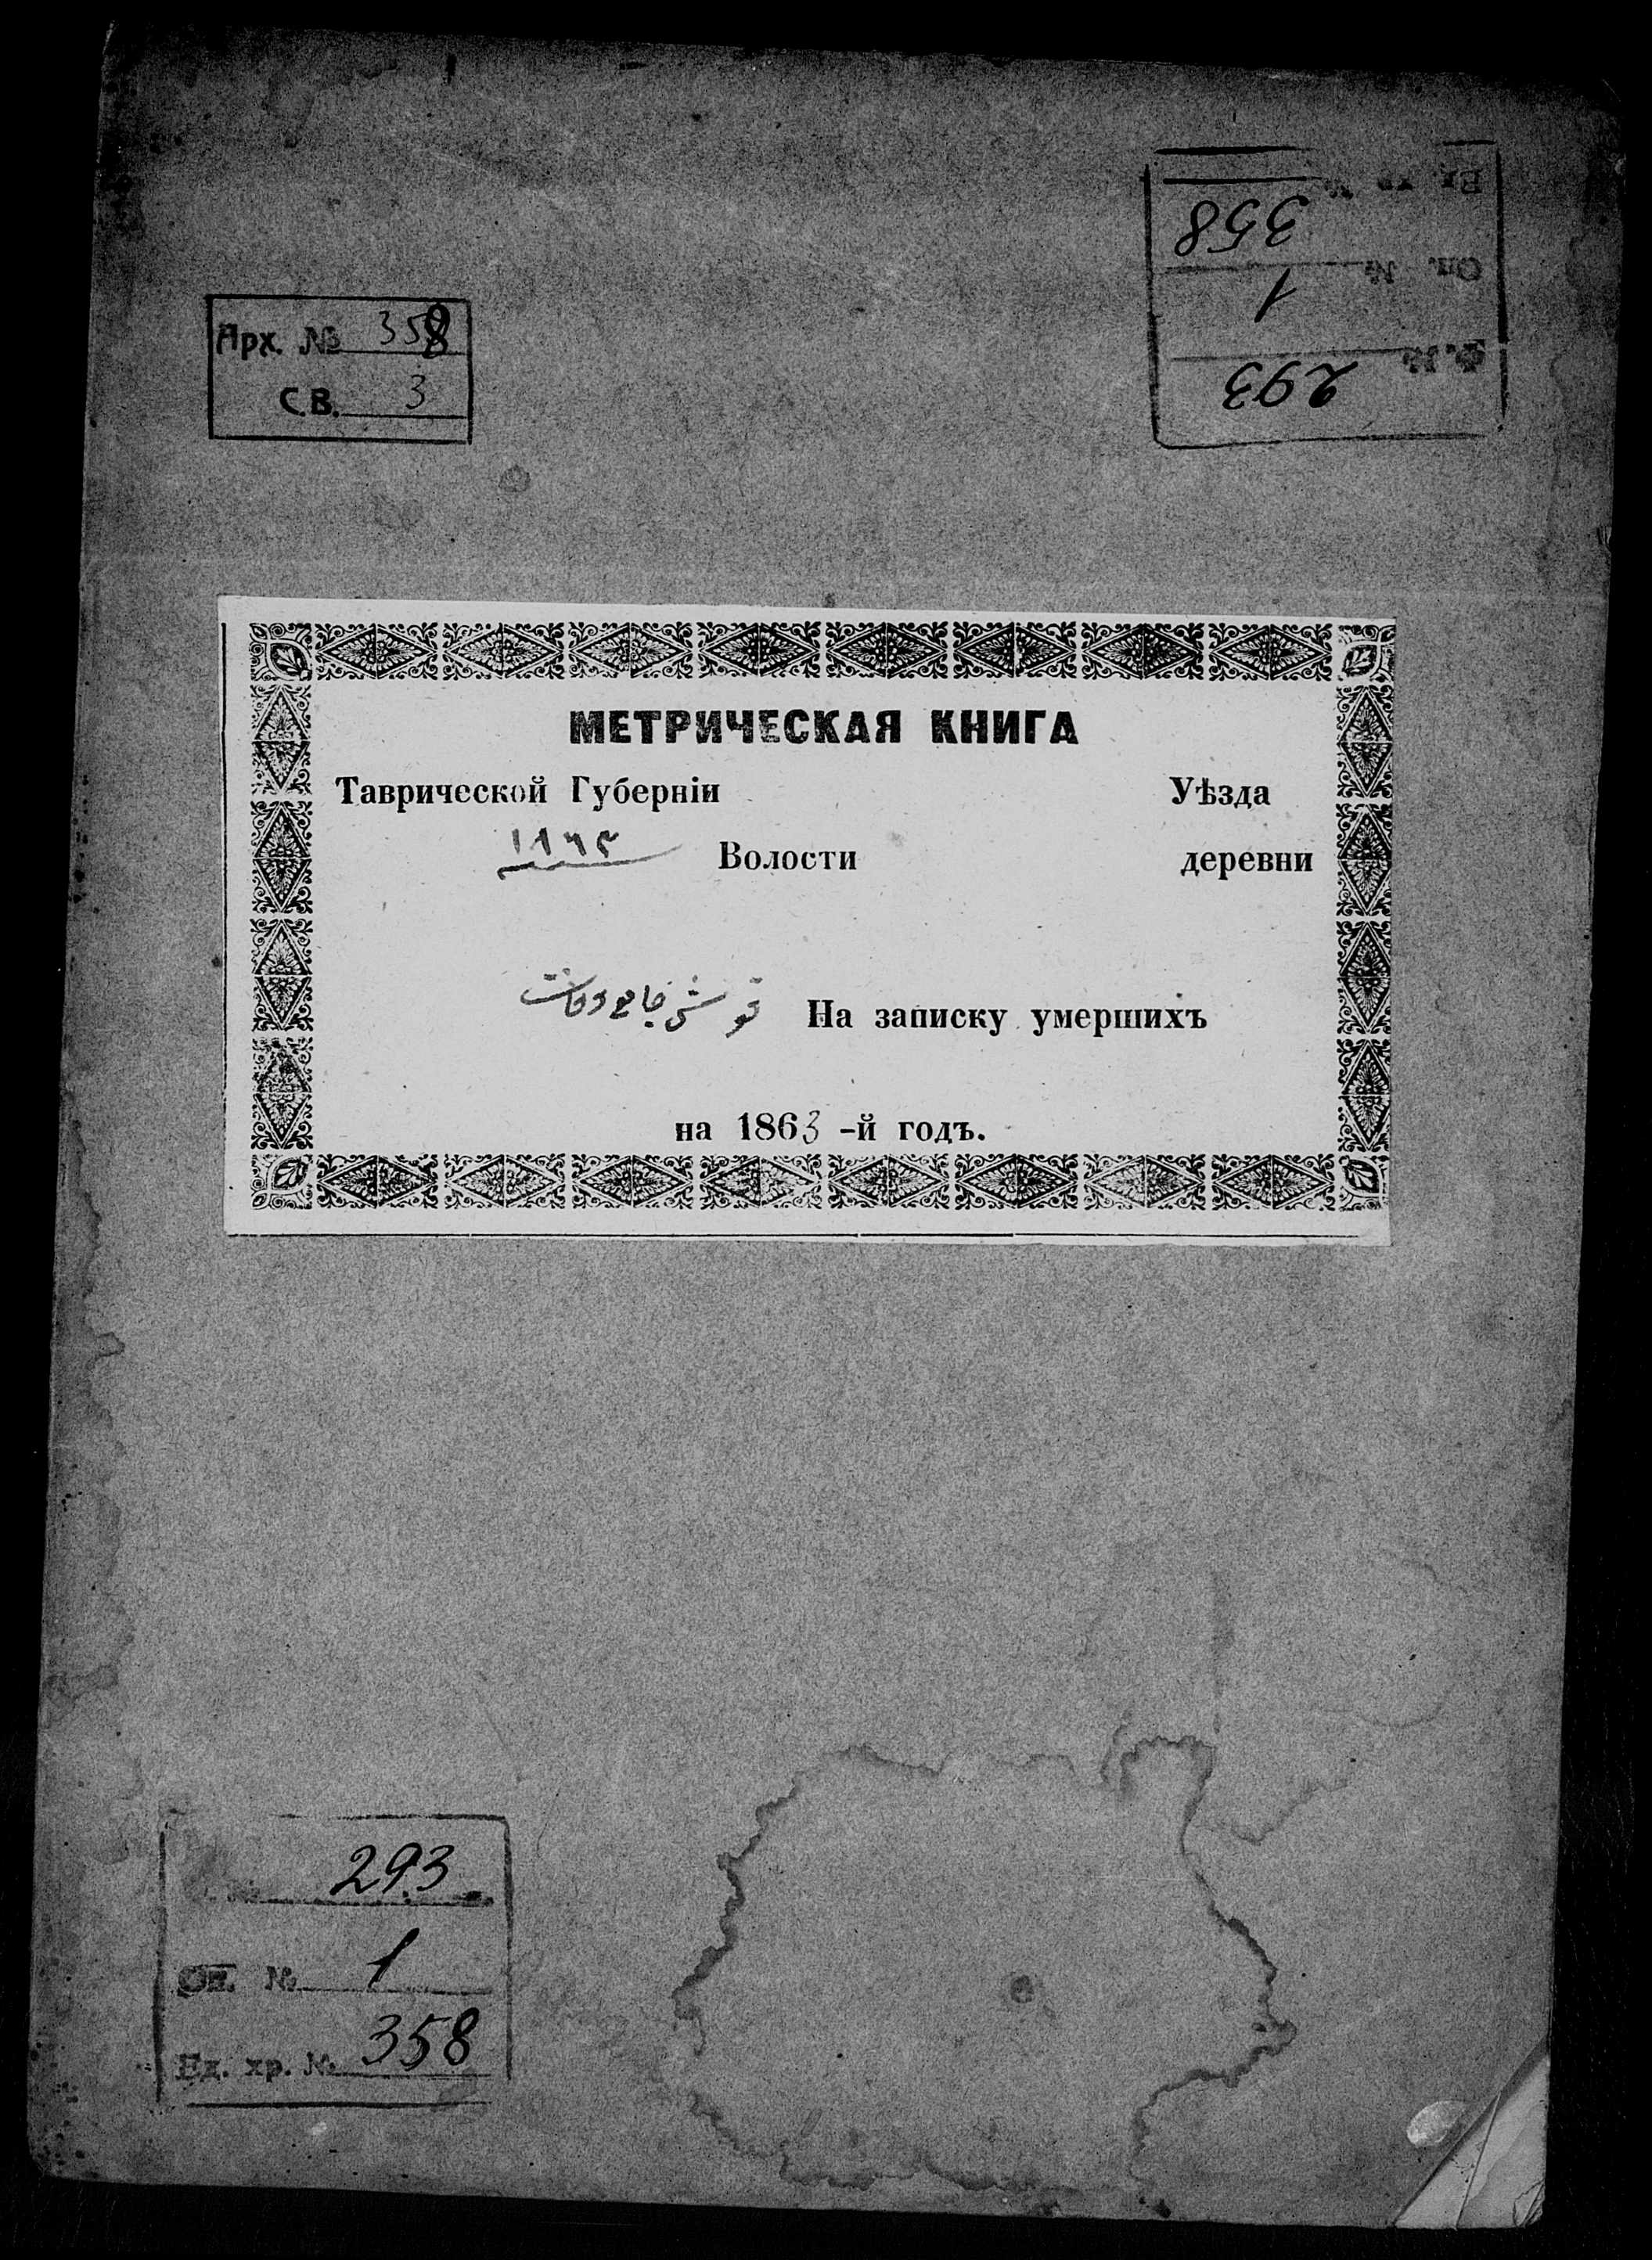 Арх. № 358
С.В. 3
Ед. хр. № 358
Оп. № 1
Ф. № 293
МЕТРИЧЕСКАЯ КНИГА
Таврической Губерніи Уѣзда
١٨٦٣ Волости деревни
جامع وفات На записку умершихъ
на 1863 -й годъ.
№ 293
Оп. № 1
Ед. хр. № 358